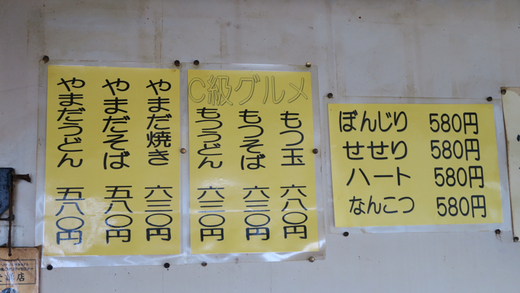 やまだ焼き 六三〇円
やまだそば 五八〇円
やまだうどん 五八〇円
C級グルメ
もつ玉 六八〇円
もつそば 六三〇円
もうどん 六三〇円
ぼんじり 580円
せせり 580円
ハート 580円
なんこつ 580円